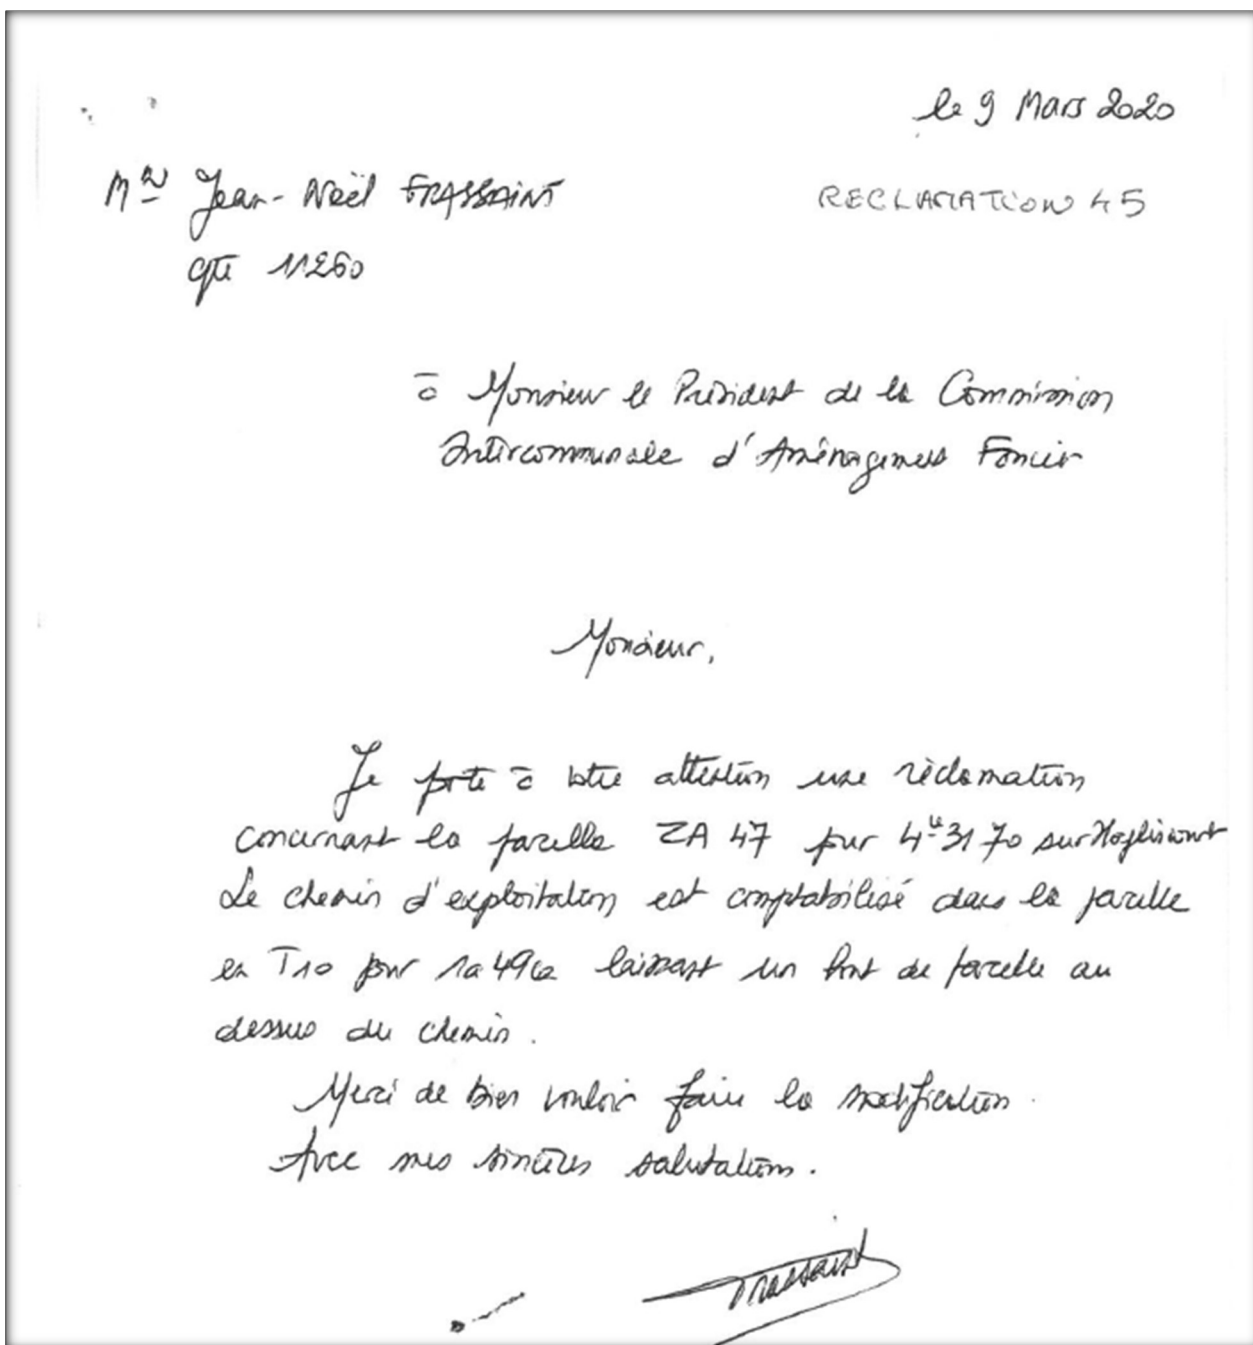 le 9 Mars 2020
Mr Jean-Noël FRASSAINT
RECLAMATION 45
cpte 11260
à Monsieur le Président de la Commission
Intercommunale d'Aménagement Foncier
Monsieur,
Je porte à votre attention une réclamation
concernant la parcelle ZA 47 pour 4 31 70 sur
Le chemin d'exploitation est comptabilisé dans la parcelle
en T10 pour 1a 49ca laissant un bout de parcelle au
dessus du chemin.
Merci de bien vouloir faire la modification.
Avec mes sincères salutations.
Frassaint